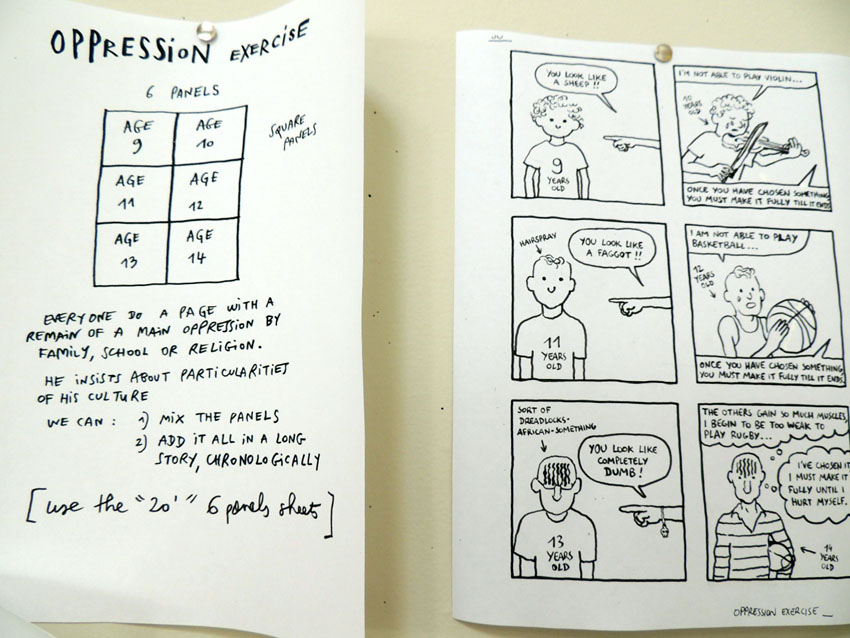 OPPRESSION EXERCISE
6 PANELS
SQUARE
PANELS
AGE
9
AGE
10
AGE
11
AGE
12
AGE
13
AGE
14
EVERYONE DO A PAGE WITH A
REMAIN OF A MAIN OPPRESSION BY
FAMILY, SCHOOL OR RELIGION.
HE INSISTS ABOUT PARTICULARITIES
OF HIS CULTURE
WE CAN : 1) MIX THE PANELS
2) ADD IT ALL IN A LONG
STORY, CHRONOLOGICALLY
[use the "20' " 6 panels sheets]
YOU LOOK LIKE
A SHEEP !!
9
YEARS
OLD
I'M NOT ABLE TO PLAY VIOLIN...
10
YEARS
OLD
ONCE YOU HAVE CHOSEN SOMETHING,
YOU MUST MAKE IT FULLY TILL IT ENDS.
HAIRSPRAY
YOU LOOK LIKE
A FAGGOT !!
11
YEARS
OLD
I AM NOT ABLE TO PLAY
BASKETBALL...
12
YEARS
OLD
ONCE YOU HAVE CHOSEN SOMETHING,
YOU MUST MAKE IT FULLY TILL IT ENDS.
SORT OF
DREADLOCKS-
AFRICAN-SOMETHING
YOU LOOK LIKE
COMPLETELY
DUMB !
13
YEARS
OLD
THE OTHERS GAIN SO MUCH MUSCLES,
I BEGIN TO BE TOO WEAK TO
PLAY RUGBY...
I'VE CHOSEN IT
I MUST MAKE IT
FULLY UNTIL I
HURT MYSELF.
14
YEARS
OLD
OPPRESSION EXERCISE _